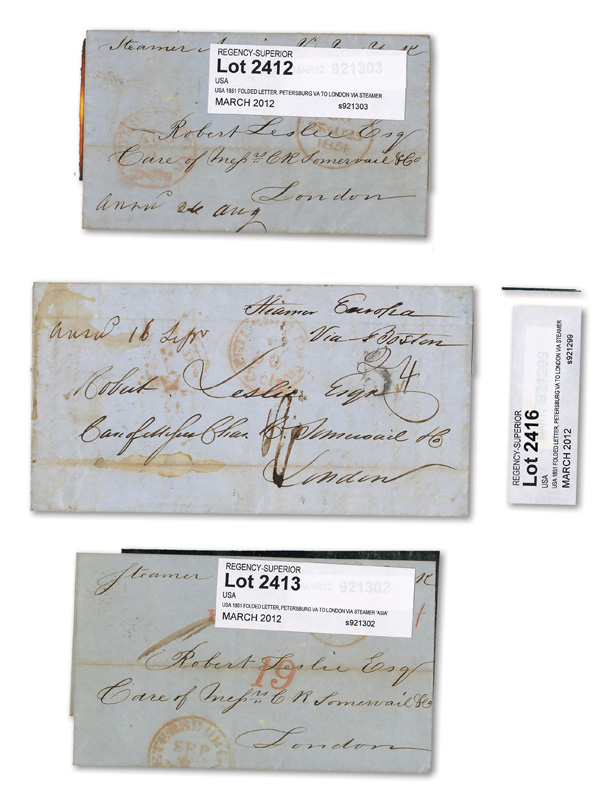 Steamer
REGENCY-SUPERIOR
Lot 2412
MAR12 921303
USA
USA 1851 FOLDED LETTER, PETERSBURG VA TO LONDON VIA STEAMER
MARCH 2012 s921303
1851
Robert Leslie Esq
Care of Messrs C R Somervail & Co
London
Aug
Steamer Europa
16 Sepr Via Boston
34
Robert Leslie Esqr
Somervail & Co
London
REGENCY-SUPERIOR
Lot 2416
921299
USA
USA 1851 FOLDED LETTER, PETERSBURG VA TO LONDON VIA STEAMER
MARCH 2012 s921299
Steamer
REGENCY-SUPERIOR
Lot 2413
MAR12 921302
USA
USA 1851 FOLDED LETTER, PETERSBURG VA TO LONDON VIA STEAMER 'ASIA'
MARCH 2012 s921302
Robert Leslie Esq
19
Care of Messrs C R Somervail & Co
PETERSBURG
SEP
London